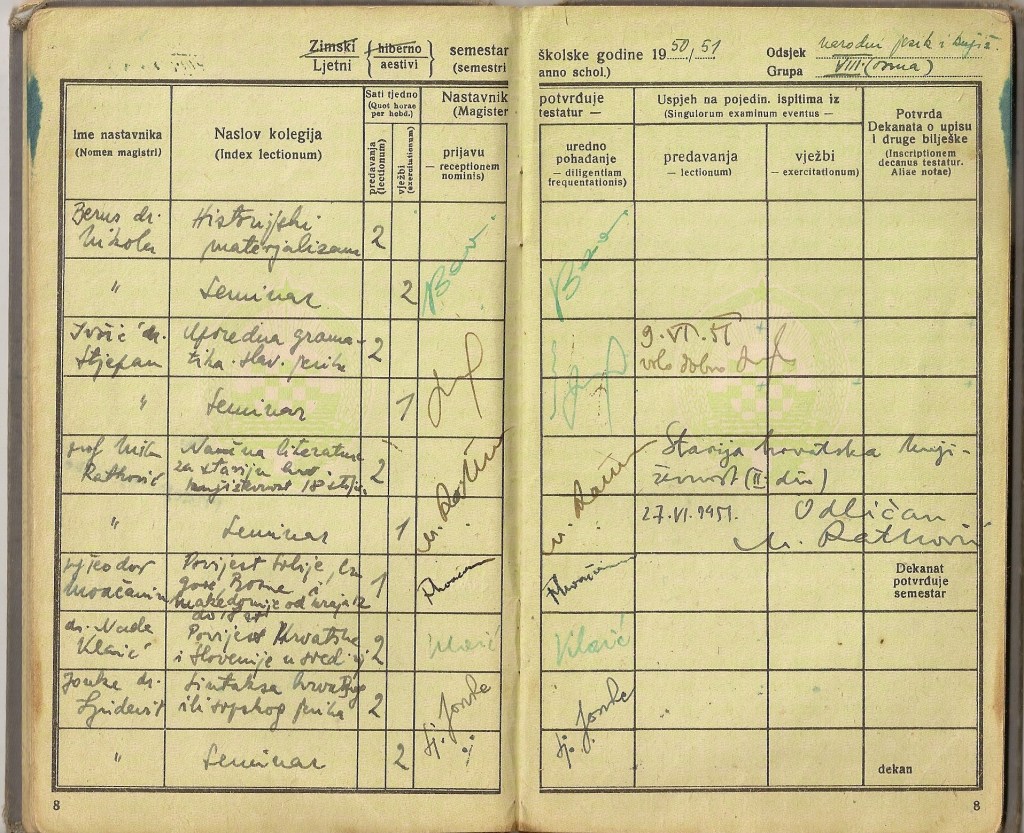 Zimski hiberno semestar školske godine 1950/51 Odsjek narodni jezik i
Ljetni aestivi (semestri anno schol.) Grupa VIII. (osma)
Ime nastavnika
(Nomen magistri)
Naslov kolegija
(Index lectionum)
Sati tjedno
(Quot horae
per hebd.)
predavanja
(lectionum)
vježbi
(exercitationum)
Nastavnik
(Magister
prijavu
— receptionem
nominis)
potvrđuje
testatur —
uredno
pohađanje
— diligentiam
frequentationis)
Uspjeh na pojedin. ispitima iz
(Singulorum examinum eventus —
predavanja
— lectionum)
vježbi
— exercitationum)
Potvrda
Dekanata o upisu
i druge bilješke
(Inscriptionem
decanus testatur.
Aliae notae)
dr. Historijski
Nikola materijalizam 2
" Seminar 2
Ivšić dr. Uporedna grama- 9. VI. 51
Stjepan tika slav. jezika 2 vrlo dobro
" Seminar 1
prof literature Starija hrvatska knji-
Ratković za stariju hrv. 2 ževnost (II. dio)
književnost 18 stolj.
" Seminar 1 27. VI. 1951. Odličan
M. Ratković
Teodor Povijest Srbije, Crne
gore, Bosne i 1
Makedonije od kraja 12
do 18 st
Dekanat
potvrđuje
semestar
dr. Nada Povijest Hrvatske
Klaić i Slovenije u sred. 2 Klaić Klaić
Jonke dr. Sintaksa hrvatskog
Ljudevit ili srpskog jezika 2 Lj. Jonke Lj. Jonke
" Seminar 2
dekan
8 8